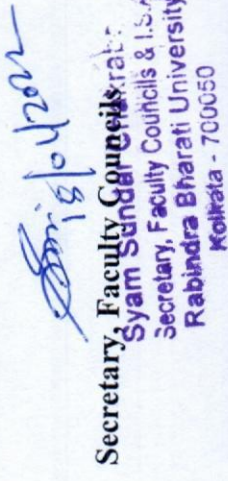 18/04/2022
Secretary, Faculty Councils
Syam Sundar
Secretary, Faculty Councils & I.S.
Rabindra Bharati University
Kolkata - 700050